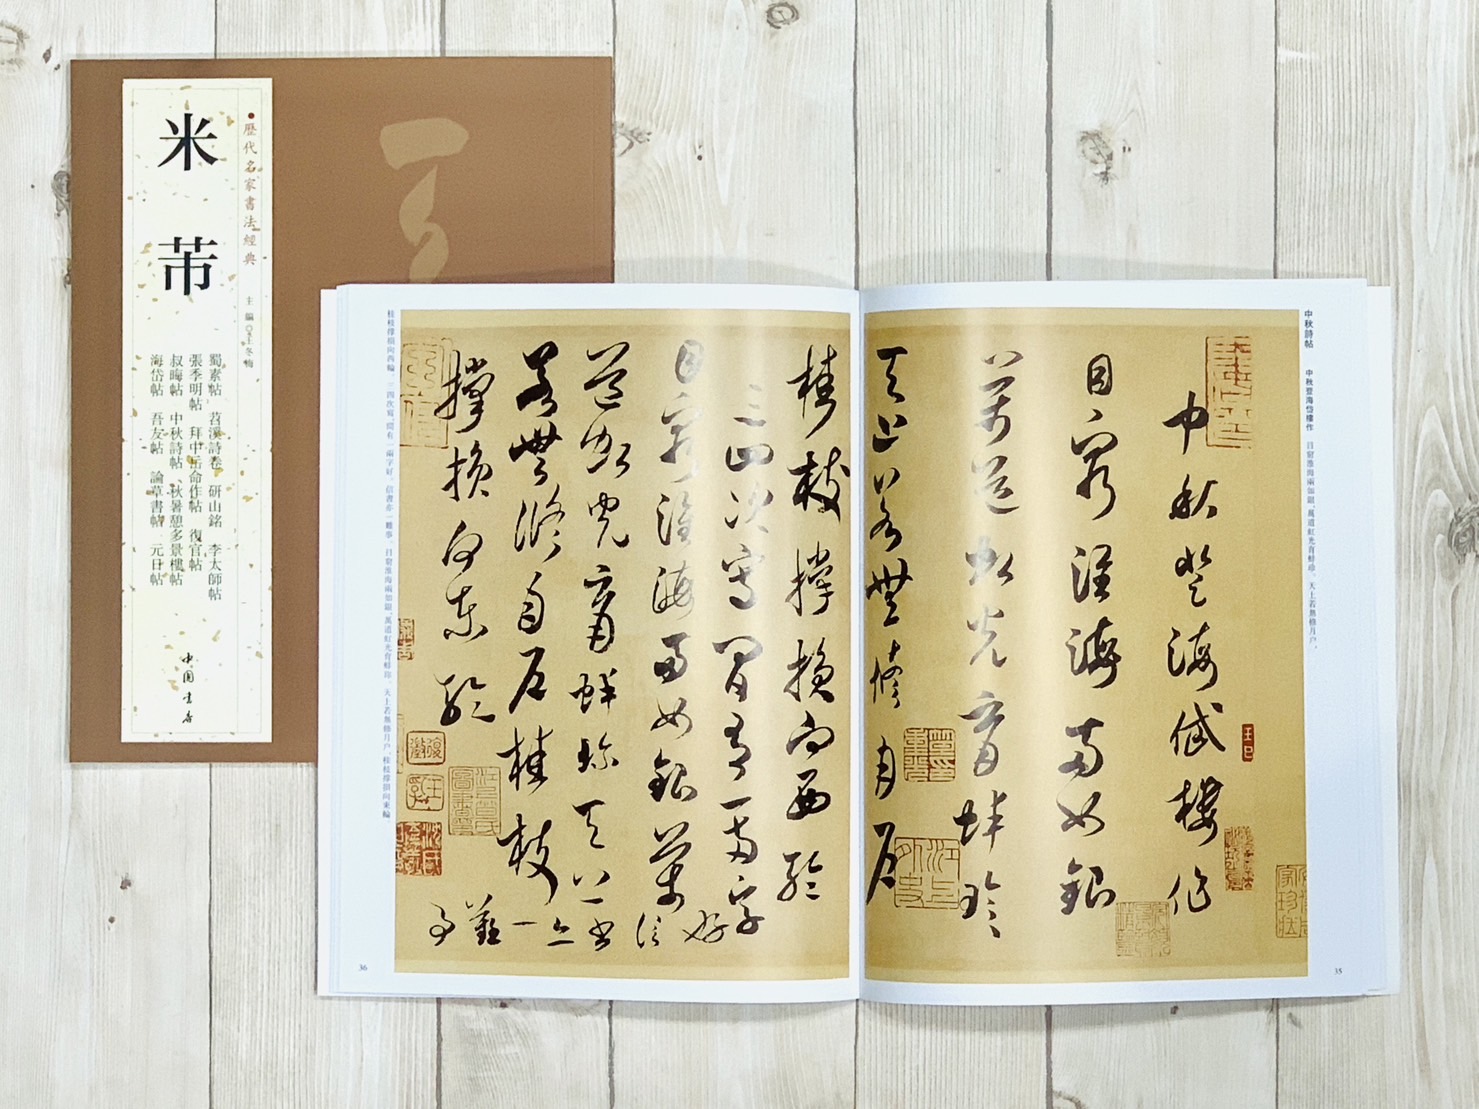 歷代名家書法經典
主編 王冬梅
米芾
蜀素帖 苕溪詩卷 研山銘 李太師帖
張季明帖 拜中岳命作帖 復官帖
叔晦帖 中秋詩帖 秋暑憩多景樓帖
海岱帖 吾友帖 論草書帖 元日帖
中國書店
中秋詩帖 中秋登海岱樓作 目窮淮海兩如銀,萬道虹光育蚌珍。天上若無修月戶,
中秋登海岱樓作
目窮淮海兩如銀
萬道虹光育蚌珍
天上若無修月戶
35
桂枝撐損向西輪
三四次寫間有一兩字
好信書亦一難事
目窮淮海兩如銀萬
道虹光育蚌珍天上
若無修月戶桂枝
撐損向東輪
桂枝撐損向西輪。三四次寫,間有一兩字好,信書亦一難事。目窮淮海兩如銀,萬道虹光育蚌珍。天上若無修月戶,桂枝撐損向東輪。
36